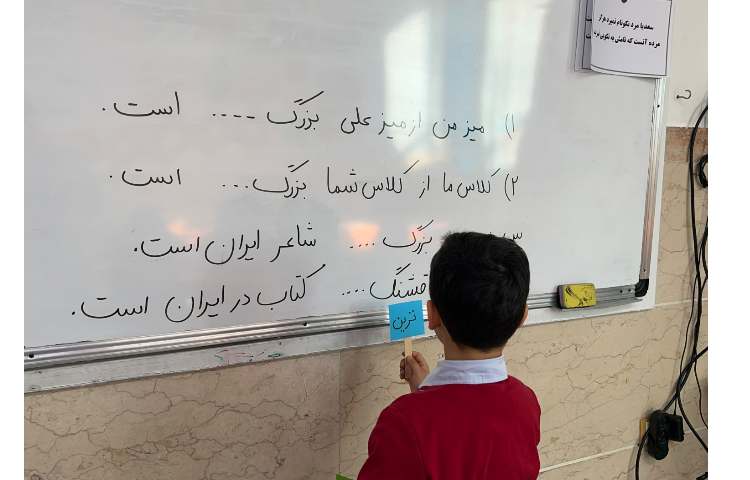 سعدیا مرد نکونام نمیرد هرگز
مرده آنست که نامش به نکویی نبرند
۱) میز من از میز علی بزرگ .... است.
۲) کلاس ما از کلاس شما بزرگ... است.
بزرگ .... شاعر ایران است.
قشنگ .... کتاب در ایران است.
ترین